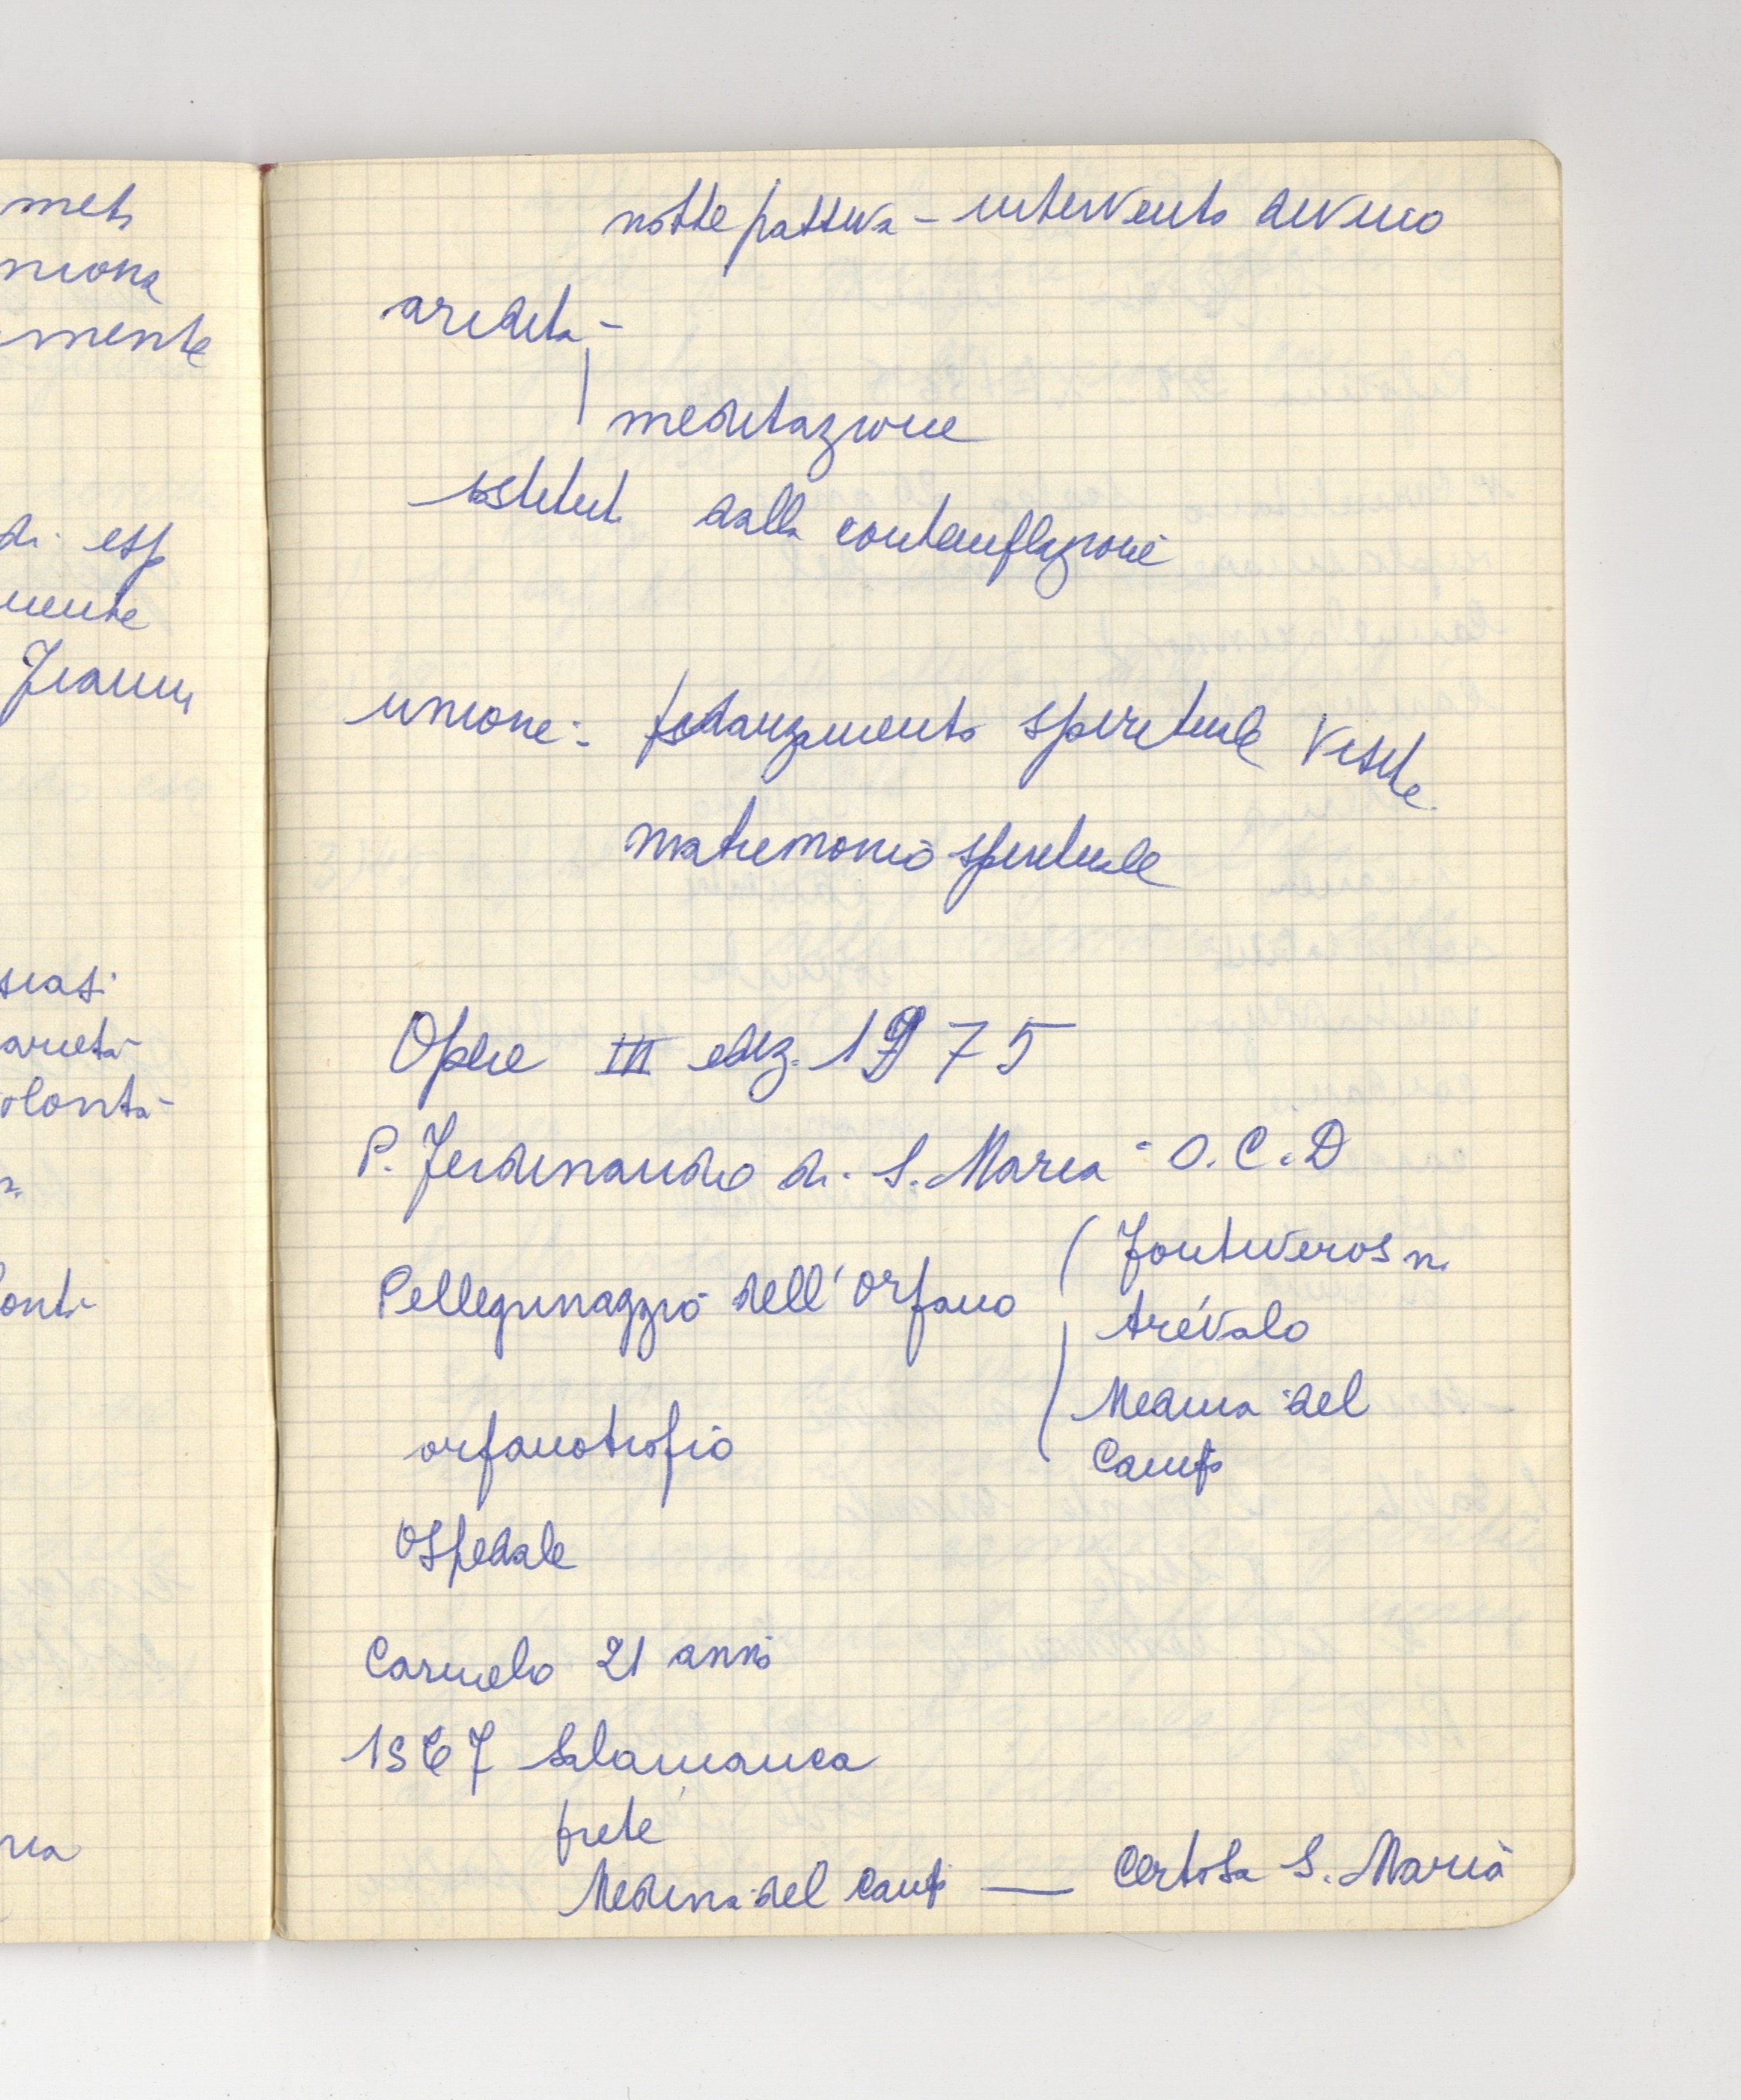 meto
niona
mente
di esp
mente
Fiamm
siasi
arietà
olontà
onti
ria
notte passiva - intervento divino
aridità -
meditazione
sostituit dalla contemplazione
unione: fidanzamento spirituale visite
matrimonio spirituale
Opere III ediz. 1975
P. Ferdinando di S. Maria - O.C.D
Pellegrinaggio dell'orfano
Fontiveros n.
Arévalo
Medina del
Campo
orfanotrofio
Ospedale
Carmelo 21 anni
1567 Salamanca
prete
Medina del Campo — Certosa S. Maria